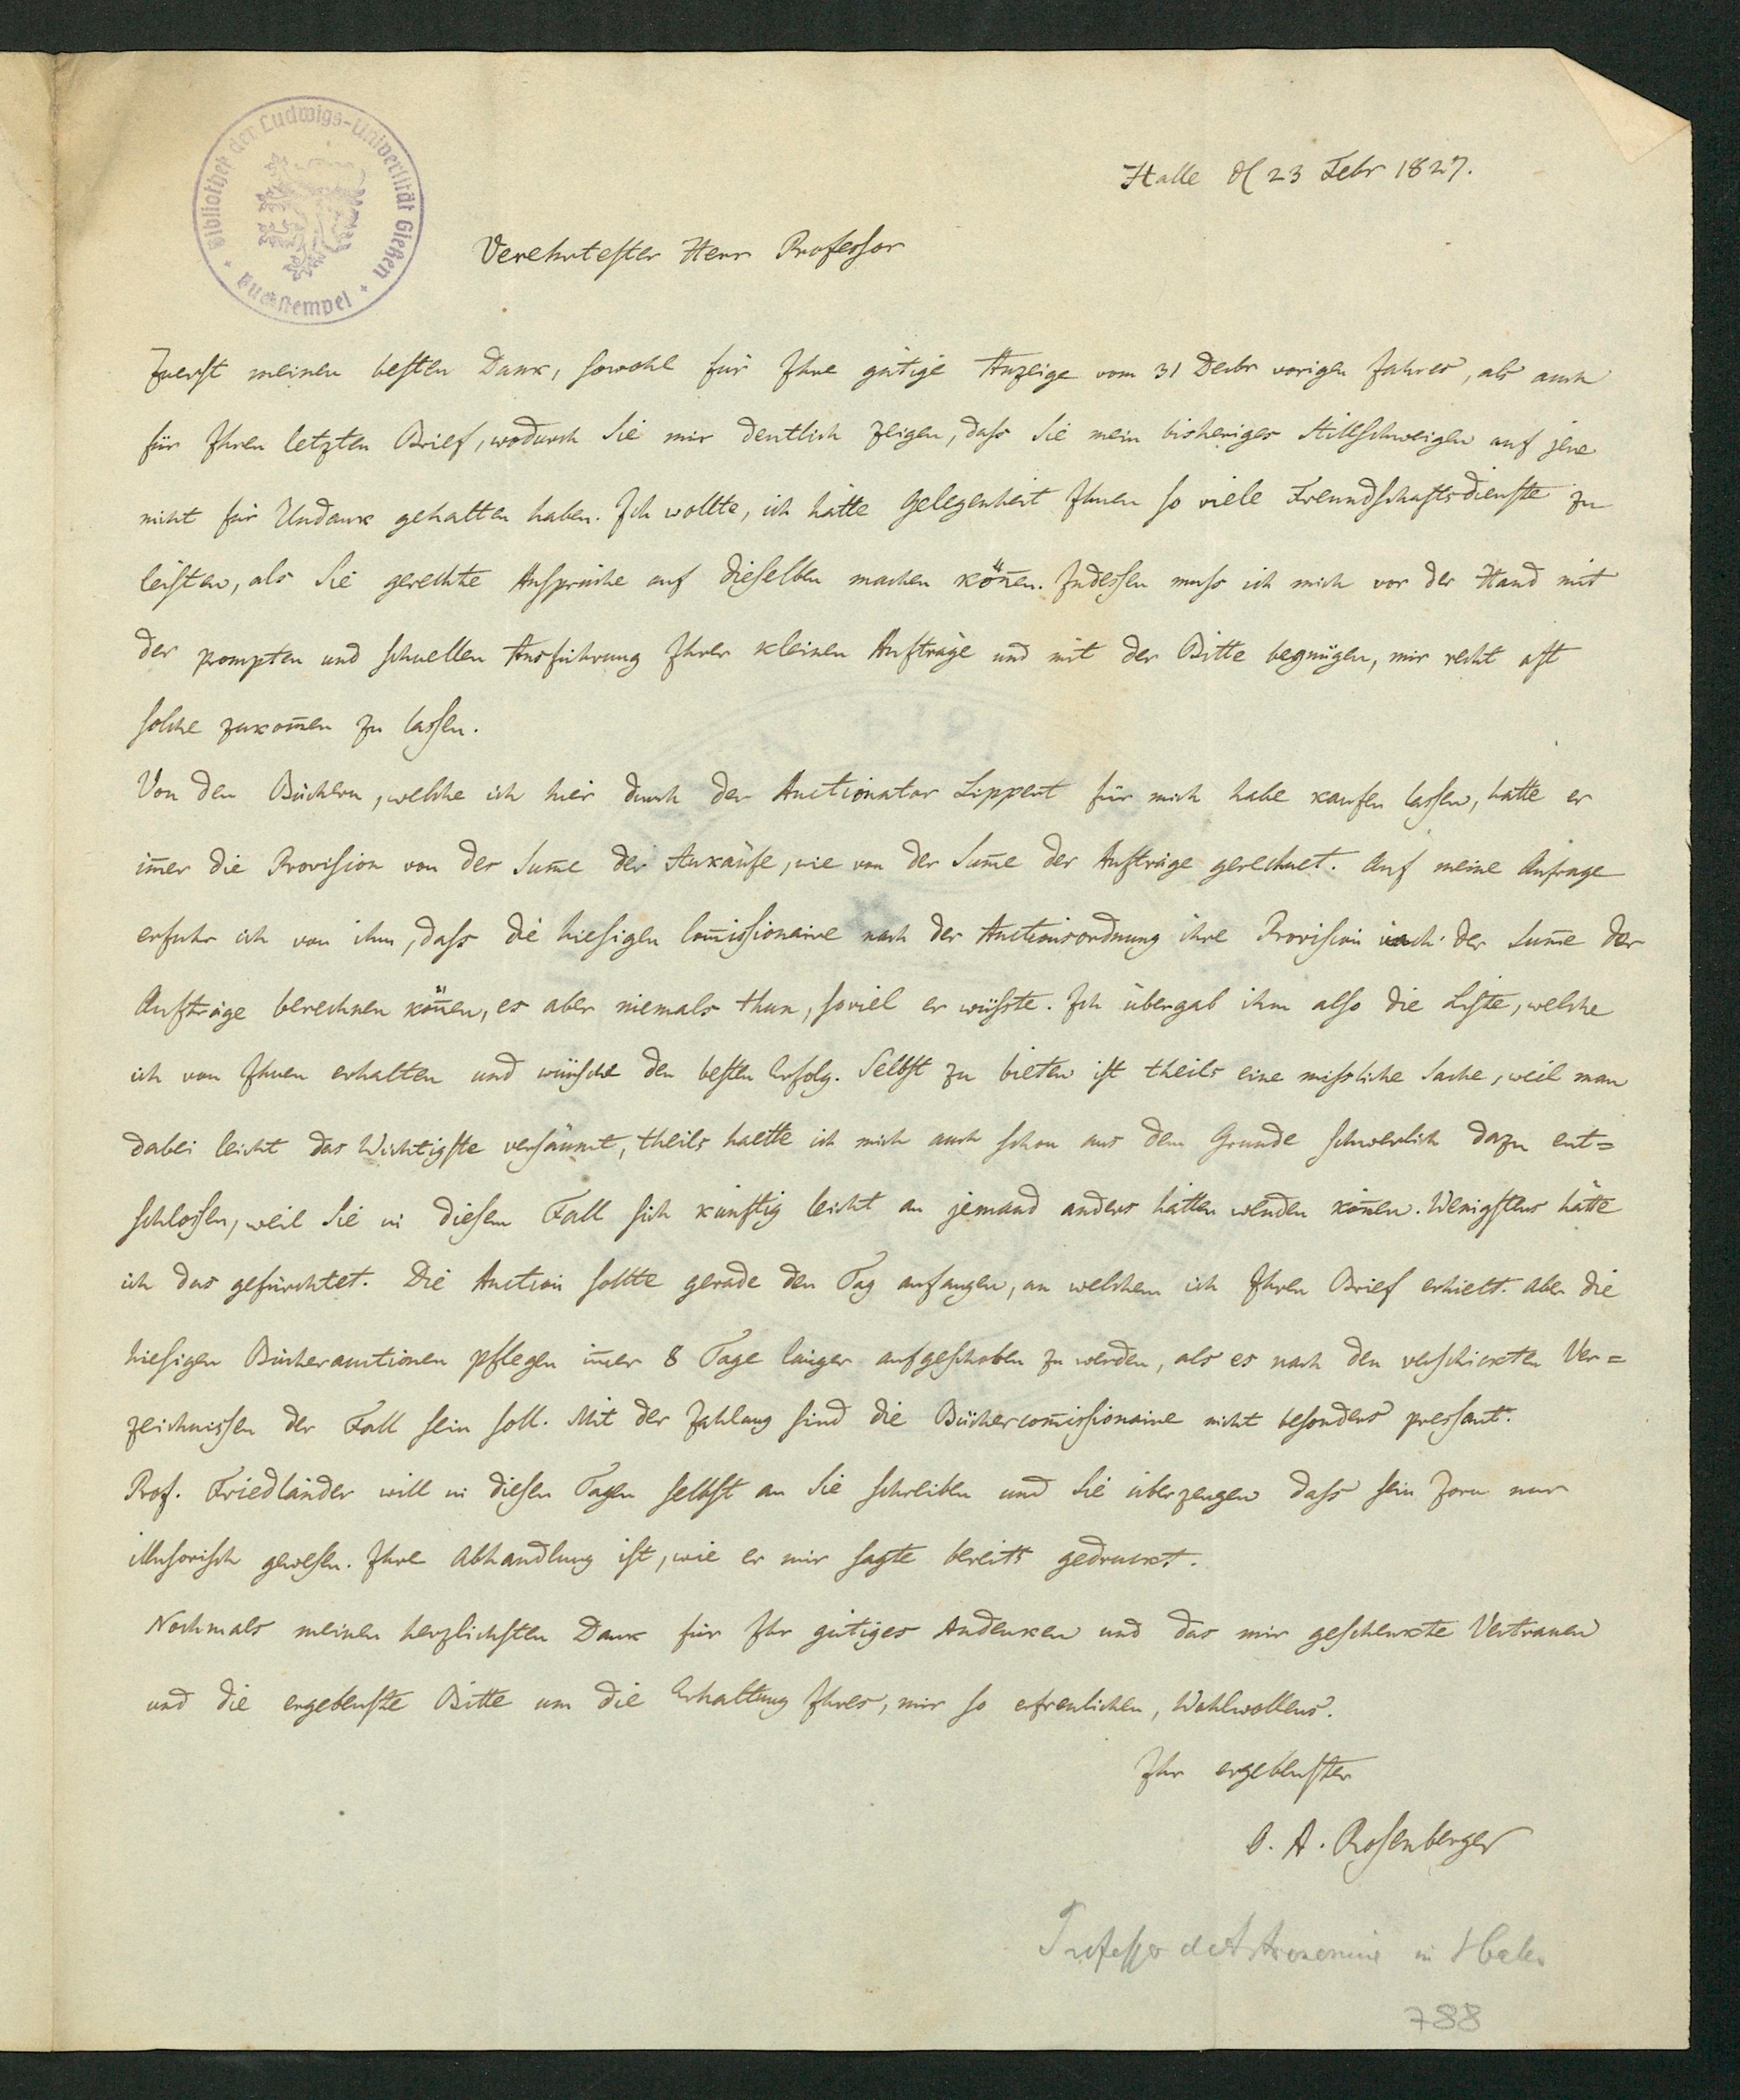 Bibliothek der Ludwigs-Universität Gießen
Buchstempel
Halle d 23 Febr 1827.
Verehrtester Herr Professor
Zuerst meinen besten Dank, sowohl für Ihre gütige Anzeige vom 31 Decbr vorigen Jahres, als auch
für Ihren letzten Brief, wodurch Sie mir deutlich zeigen, dass Sie mein bisheriges Stillschweigen auf jene
nicht für Undank gehalten haben. Ich wollte, ich hätte Gelegenheit Ihnen so viele Freundschaftsdienste zu
leisten, als Sie gerechte Ansprüche auf dieselben machen kön̄en. Indessen muss ich mich vor der Hand mit
der prompten und schnellen Ausführung Ihrer kleinen Aufträge und mit der Bitte begnügen, mir recht oft
solche zukom̄en zu lassen.
Von den Büchern, welche ich hier durch den Auctionator Lippert für mich habe kaufen lassen, hatte er
im̄er die Provision von der Sum̄e der Ankäufe, wie von der Sum̄e der Aufträge gerechnet. Auf meine Anfrage
erfuhr ich von ihm, dass die hiesigen Com̄issionaire nach der Auctionsordnung ihre Provision nach der Sum̄e der
Aufträge berechnen kön̄en, es aber niemals thun, soviel er wüsste. Ich übergab ihm also die Liste, welche
ich von Ihnen erhalten und wünsche den besten Erfolg. Selbst zu bieten ist theils eine missliche Sache, weil man
dabei leicht das Wichtigste versäumt, theils haette ich mich auch schon aus dem Grunde schwerlich dazu ent=
schlossen, weil Sie in diesem Fall sich künftig leicht an jemand anders hätten wenden kön̄en. Wenigstens hätte
ich das gefürchtet. Die Auction sollte gerade den Tag anfangen, an welchem ich Ihren Brief erhielt. Aber die
hiesigen Bücherauctionen pflegen im̄er 8 Tage länger aufgeschoben zu werden, als es nach den verschickten Ver=
zeichnissen der Fall sein soll. Mit der Zahlung sind die Büchercom̄issionaire nicht besonders pressant.
Prof. Friedländer will in diesen Tagen selbst an Sie schreiben und Sie überzeugen dass sein Zorn nur
illusorisch gewesen. Ihre Abhandlung ist, wie er mir sagte bereits gedruckt.
Nochmals meinen herzlichsten Dank für Ihr gütiges Andenken und das mir geschenkte Vertrauen
und die ergebenste Bitte um die Erhaltung Ihres, mir so erfreulichen, Wohlwollens.
Ihr ergebenster
O. A. Rosenberger
Professor der Astronomie in Halle
788